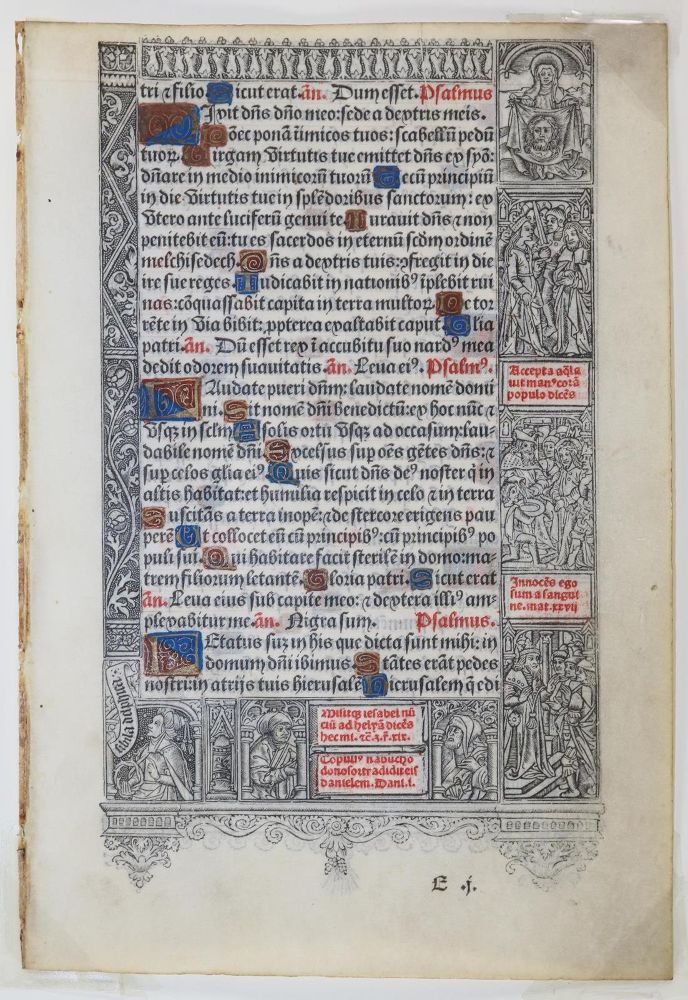 tri ⁊ filio. Sicut erat. añ. Dum esset. Psalmus
Ixit dñs dño meo: sede a dextris meis.
Donec ponā inimicos tuos: scabellū pedū
tuoꝝ. Virgam virtutis tue emittet dñs ex syō:
dñare in medio inimicorū tuorū. Tecū principiū
in die virtutis tue in splēdoribus sanctorum: ex
vtero ante luciferū genui te. Iurauit dñs ⁊ non
penitebit eū: tu es sacerdos in eternū scđm ordinē
melchisedech. Dñs a dextris tuis: ꝯfregit in die
ire sue reges. Iudicabit in nationibꝰ īplebit rui
nas: cōquassabit capita in terra multoꝝ. De tor
rēte in via bibit: ꝓpterea exaltabit caput. Glia
patri. añ. Dū esset rex ī accubitu suo nardꝰ mea
dedit odorem suauitatis. añ. Leua eiꝰ. Psalmꝰ.
LAudate pueri dñm: laudate nomē domi
ni. Sit nomē dñi benedictū: ex hoc nūc ⁊
vsqꝫ in sclm. A solis ortu vsqꝫ ad occasum: lau-
dabile nomē dñi. Excelsus sup oēs gētes dñs: ⁊
sup celos glia eiꝰ. Quis sicut dñs deꝰ noster q̇ in
altis habitat: et humilia respicit in celo ⁊ in terra
Suscitās a terra inopē: ⁊ de stercore erigens pau
perē. Et collocet eū cū principibꝰ: cū principibꝰ po
puli sui. Qui habitare facit sterilē in domo: ma-
trem filiorum letantē. Gloria patri. Sicut erat
añ. Leua eius sub capite meo: ⁊ dextera illiꝰ am-
plexabitur me. añ. Nigra sum. Psalmus.
LEtatus suꝫ in his que dicta sunt mihi: in
domum dñi ibimus. Stātes erāt pedes
nostri: in atrijs tuis hierusalē. Hierusalem q̄ edi
Accepta aq̄ la
uit manꝰ corā
populo dicēs
Innocēs ego
sum a sangui
ne. mat. xxvij
Misitqꝫ iesabel nū
ciū ad helyā dicēs
hec mi. ⁊c̄. 3. r̄. xix.
nabucho
donosor tradidit eis
danielem. Dani. i.
E .j.